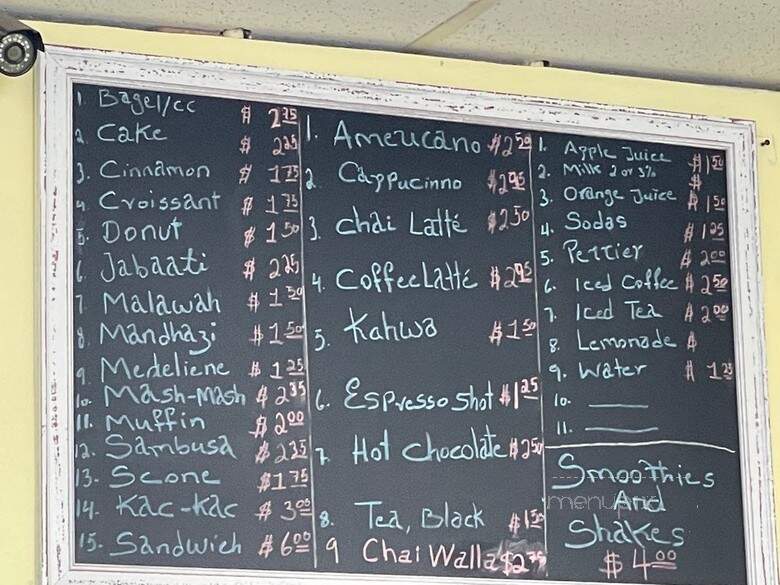 1. Bagel/cc $ 2.75
2. Cake $ 2.25
3. Cinnamon $ 1.75
4. Croissant $ 1.75
5. Donut $ 1.50
6. Jabaati $ 2.25
7. Malawah $ 1.50
8. Mandhazi $ 1.50
9. Medeliene $ 1.25
10. Mash-Mash $ 2.25
11. Muffin $ 2.00
12. Sambusa $ 2.25
13. Scone $ 1.75
14. Kac-Kac $ 3.00
15. Sandwich $ 6.00
1. Americano $ 2.50
2. Cappucinno $ 2.95
3. Chai Latté $ 2.50
4. Coffee Latté $ 2.95
5. Kahwa $ 1.50
6. Espresso shot $ 1.25
7. Hot chocolate $ 2.50
8. Tea, Black $ 1.50
9 Chai Walla $ 2.75
1. Apple Juice $ 1.50
2. Milk 2 or 3% $
3. Orange Juice $ 1.50
4. Sodas $ 1.25
5. Perrier $ 2.00
6. Iced Coffee $ 2.50
7. Iced Tea $ 2.00
8. Lemonade $
9. Water $ 1.25
10. ____
11. ____
Smoothies
And
Shakes
$ 4.00
menupix